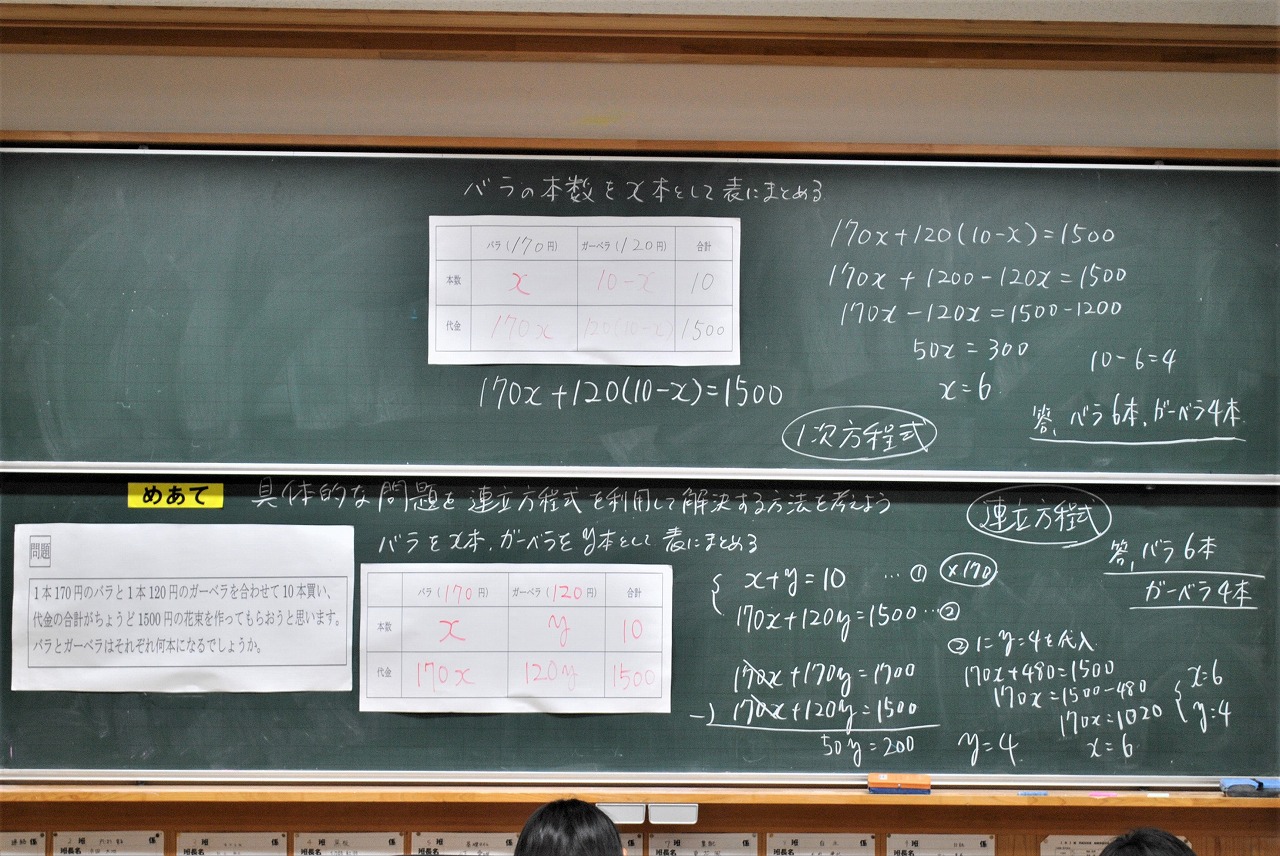 バラの本数をx本として表にまとめる
バラ(170円) ガーベラ(120円) 合計
本数 x 10-x 10
代金 170x 120(10-x) 1500
170x+120(10-x)=1500
170x+120(10-x)=1500
170x+1200-120x=1500
170x-120x=1500-1200
50x=300
x=6
10-6=4
答、バラ6本、ガーベラ4本
1次方程式
めあて 具体的な問題を連立方程式を利用して解決する方法を考えよう
問題
1本170円のバラと1本120円のガーベラを合わせて10本買い、
代金の合計がちょうど1500円の花束を作ってもらおうと思います。
バラとガーベラはそれぞれ何本になるでしょうか。
バラをx本、ガーベラをy本として表にまとめる
バラ(170円) ガーベラ(120円) 合計
本数 x y 10
代金 170x 120y 1500
x+y=10 …① ×170
170x+120y=1500…②
170x+170y=1700
-) 170x+120y=1500
50y=200
y=4
連立方程式
②にy=4を代入
170x+480=1500
170x=1500-480
170x=1020
x=6
x=6
y=4
答、バラ6本
ガーベラ4本
班長名
班長名
班長名
班長名
班長名
班長名